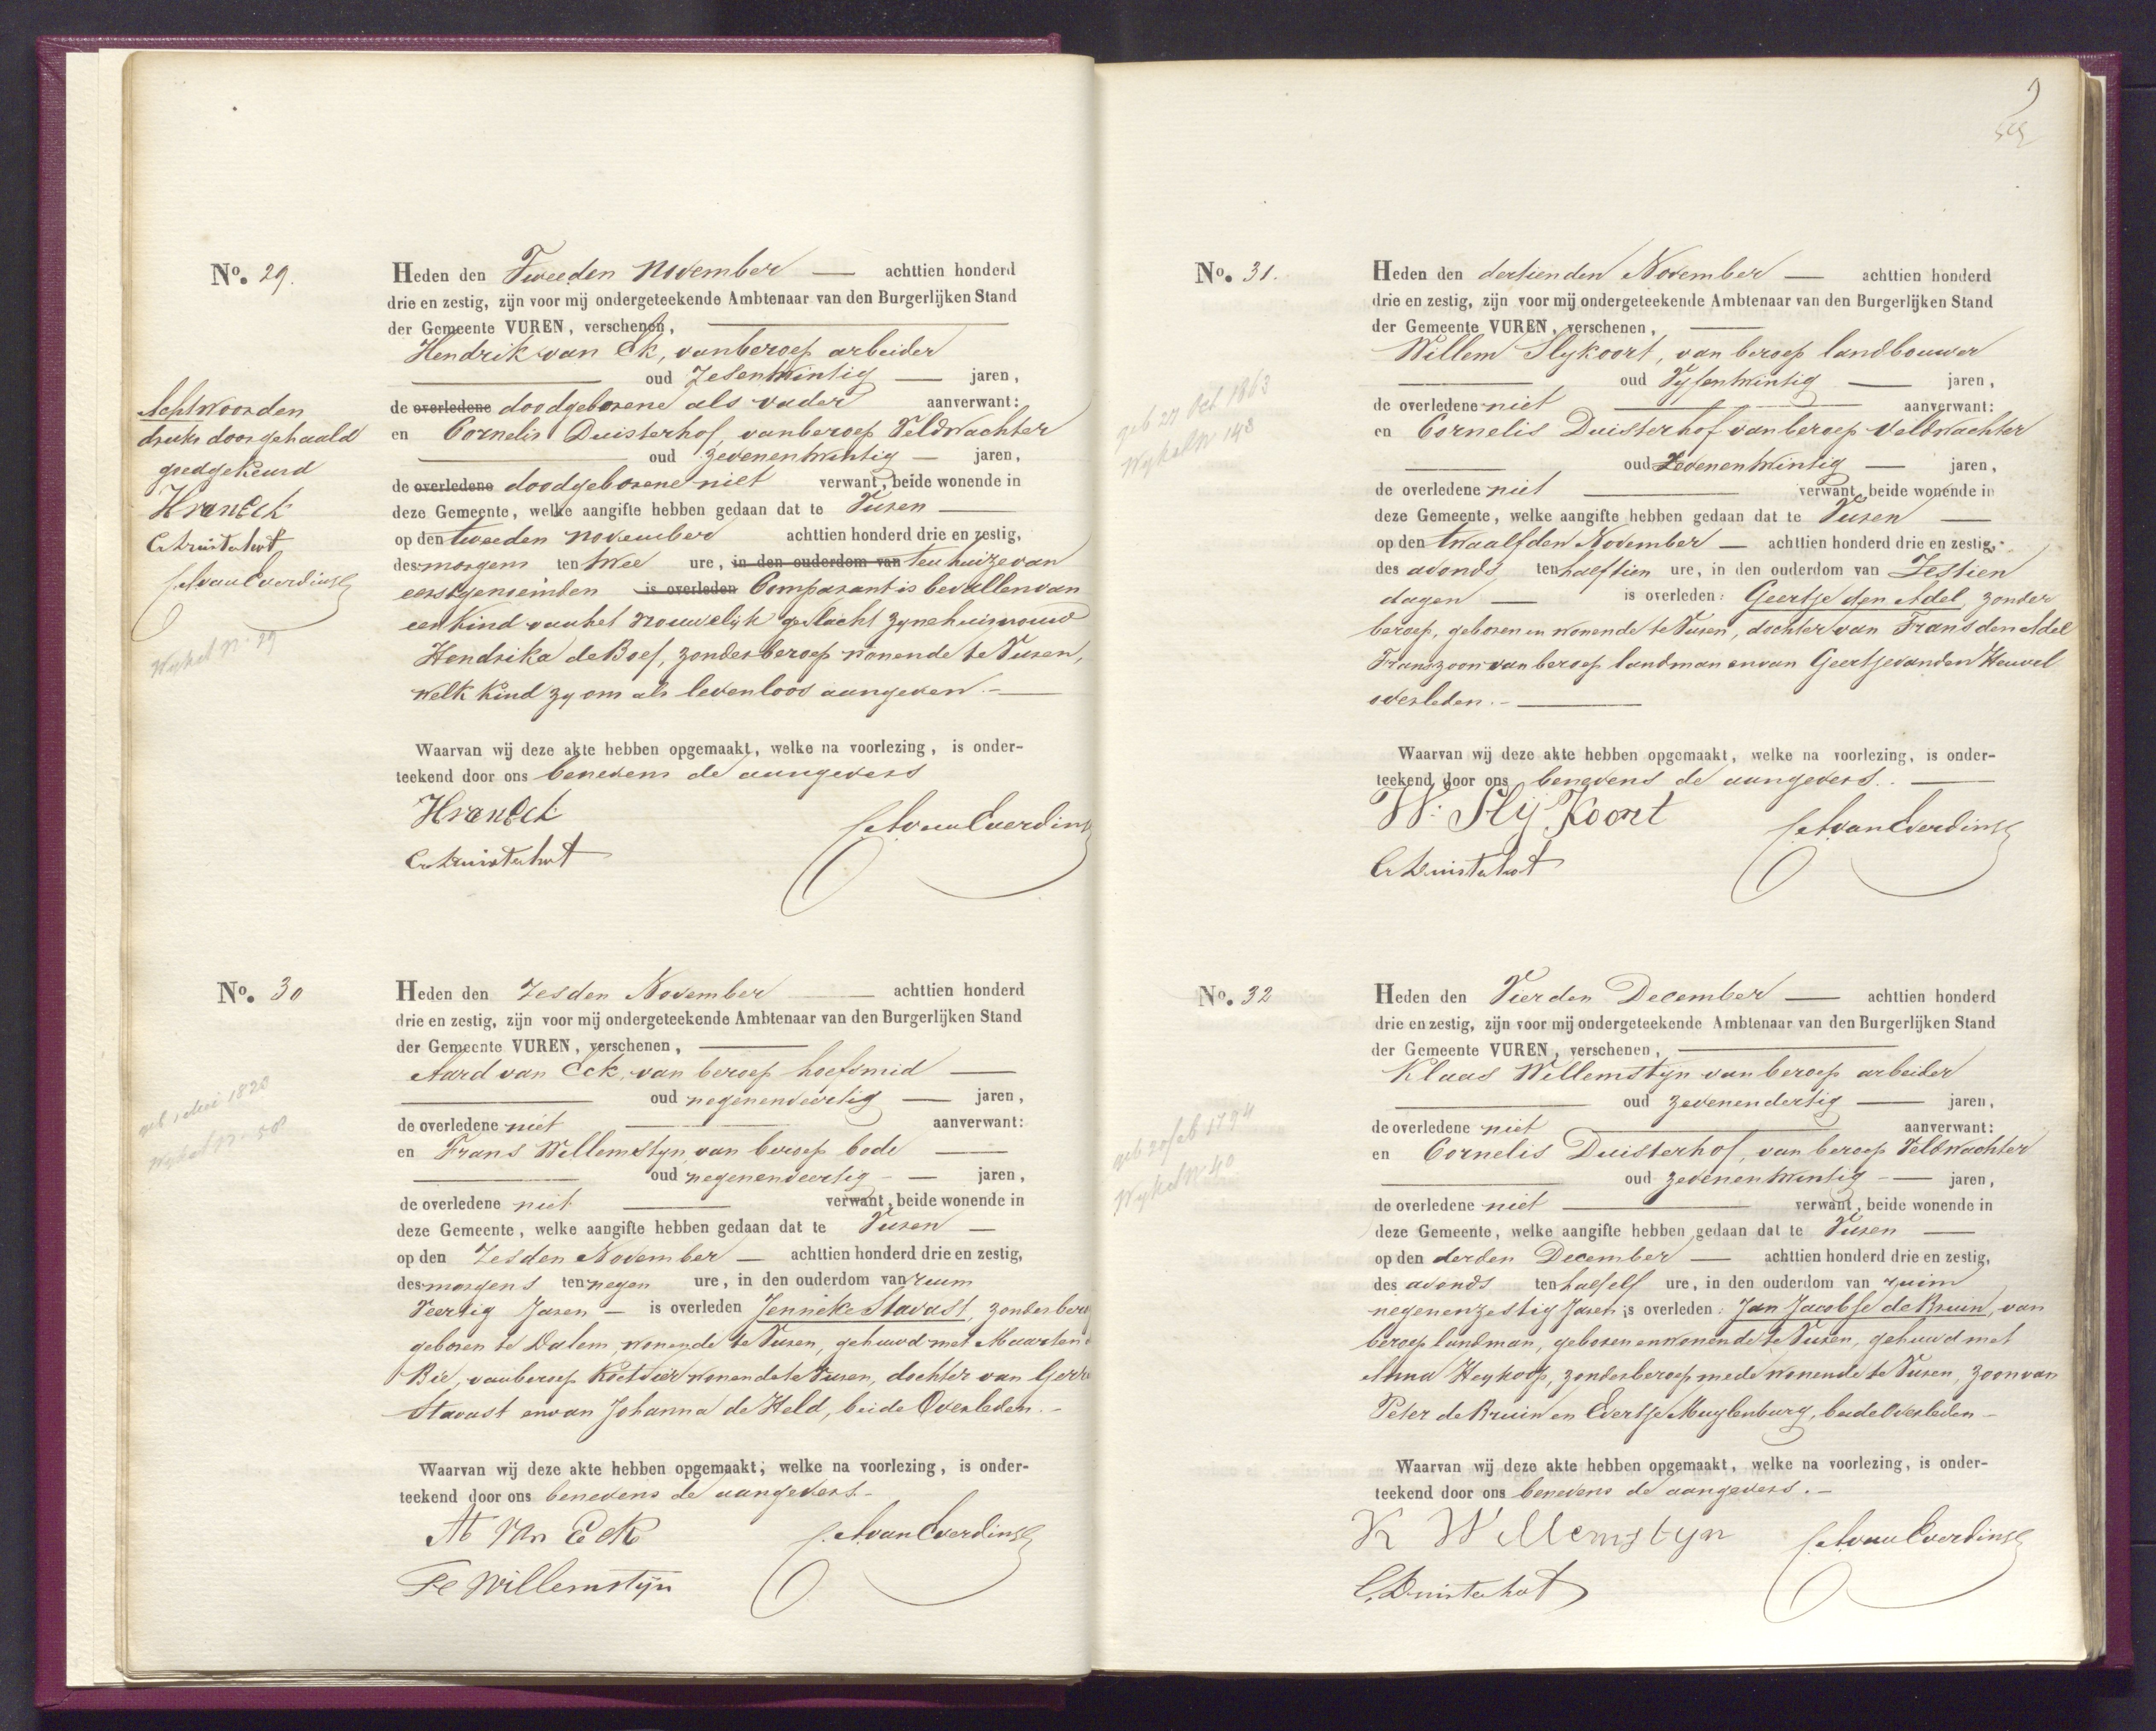 No. 29.
Heden den Tweeden November — achttien honderd
drie en zestig, zijn voor mij ondergeteekende Ambtenaar van den Burgerlijken Stand
der Gemeente VUREN, verschenen,
Hendrik van Ek, van beroep arbeider
oud Zesentwintig — jaren,
de overledene doodgeborene als vader aanverwant:
en Cornelis Duisterhof, van beroep Veldwachter
oud zevenentwintig — jaren,
de overledene doodgeborene niet verwant, beide wonende in
deze Gemeente, welke aangifte hebben gedaan dat te Vuren
op den tweeden november achttien honderd drie en zestig,
des morgens ten twee ure, in den ouderdom van ten huize van
eerstgenoemden is overleden Comparant is bevallen van
een kind van het vrouwelijk geslacht zyne huisvrouw
Hendrika de Boef, zonder beroep wonende te Vuren,
welk kind zy om als levenloos aangeven. —
Waarvan wij deze akte hebben opgemaakt, welke na voorlezing, is onder-
teekend door ons benevens de aangevers
HvanEck
C Duisterhof
van Everding
Acht woorden
druks doorgehaald
goedgekeurd
HvanEck
C Duisterhof
van Everdinge
Wykel No 29
No. 30
Heden den Zesden November — achttien honderd
drie en zestig, zijn voor mij ondergeteekende Ambtenaar van den Burgerlijken Stand
der Gemeente VUREN, verschenen,
Aard van Eck, van beroep hoefsmid
oud negenenveertig — jaren,
de overledene niet aanverwant:
en Frans Willemstyn van beroep bode
oud negenenveertig — jaren,
de overledene niet verwant, beide wonende in
deze Gemeente, welke aangifte hebben gedaan dat te Vuren —
op den Zesden November — achttien honderd drie en zestig,
des morgens ten negen ure, in den ouderdom van ruim
Veertig Jaren — is overleden Jenneke Stavast, zonder bero
geboren te Dalem, wonende te Vuren, gehuwd met Maarten
Bie, van beroep wonende te Vuren, dochter van Gerr
Stavast en van Johanna de Held, beide Overleden. —
Waarvan wij deze akte hebben opgemaakt, welke na voorlezing, is onder-
teekend door ons benevens de aangevers. —
A van Eck
van Everdinge
F Willemstijn
geb 1 1823
Wykel No 58
No. 31.
Heden den dertienden November — achttien honderd
drie en zestig, zijn voor mij ondergeteekende Ambtenaar van den Burgerlijken Stand
der Gemeente VUREN, verschenen,
Willem Slykoort, van beroep landbouwer
oud Vyfentwintig — jaren,
de overledene niet aanverwant:
en Cornelis Duisterhof van beroep Veldwachter
oud Zevenentwintig — jaren,
de overledene niet verwant, beide wonende in
deze Gemeente, welke aangifte hebben gedaan dat te Vuren —
op den twaalfden November — achttien honderd drie en zestig,
des avonds ten half tien ure, in den ouderdom van Zestien
dagen — is overleden: Geertje den Adel, zonder
beroep, geboren en wonende te Vuren, dochter van Frans den Adel
Franszoon van beroep landman en van Geertje van den Heuvel
overleden. —
Waarvan wij deze akte hebben opgemaakt, welke na voorlezing, is onder-
teekend door ons benevens de aangevers. —
W. Slij Koort
van Everdinge
C Duisterhof
geb 27 Oct 1863
Wykel No 148
No. 32
Heden den Vierden December — achttien honderd
drie en zestig, zijn voor mij ondergeteekende Ambtenaar van den Burgerlijken Stand
der Gemeente VUREN, verschenen,
Klaas Willemstijn van beroep arbeider
oud zevenendertig — jaren,
de overledene niet aanverwant:
en Cornelis Duisterhof, van beroep Veldwachter
oud zevenentwintig — jaren,
de overledene niet verwant, beide wonende in
deze Gemeente, welke aangifte hebben gedaan dat te Vuren —
op den derden December — achttien honderd drie en zestig,
des avonds ten half elf ure, in den ouderdom van ruim
negenenzestig Jaren is overleden: Jan Jacobse de Bruin, van
beroep landman, geboren en wonende te Vuren, gehuwd met
Anna Heykoop, zonder beroep mede wonende te Vuren, zoon van
Peter de Bruin en Evertje Muylenburg, beide Overleden —
Waarvan wij deze akte hebben opgemaakt, welke na voorlezing, is onder-
teekend door ons benevens de aangevers. —
K Willemstyn
van Everdinge
C. Duisterhof
geb 20 feb 1794
Wykel No 40